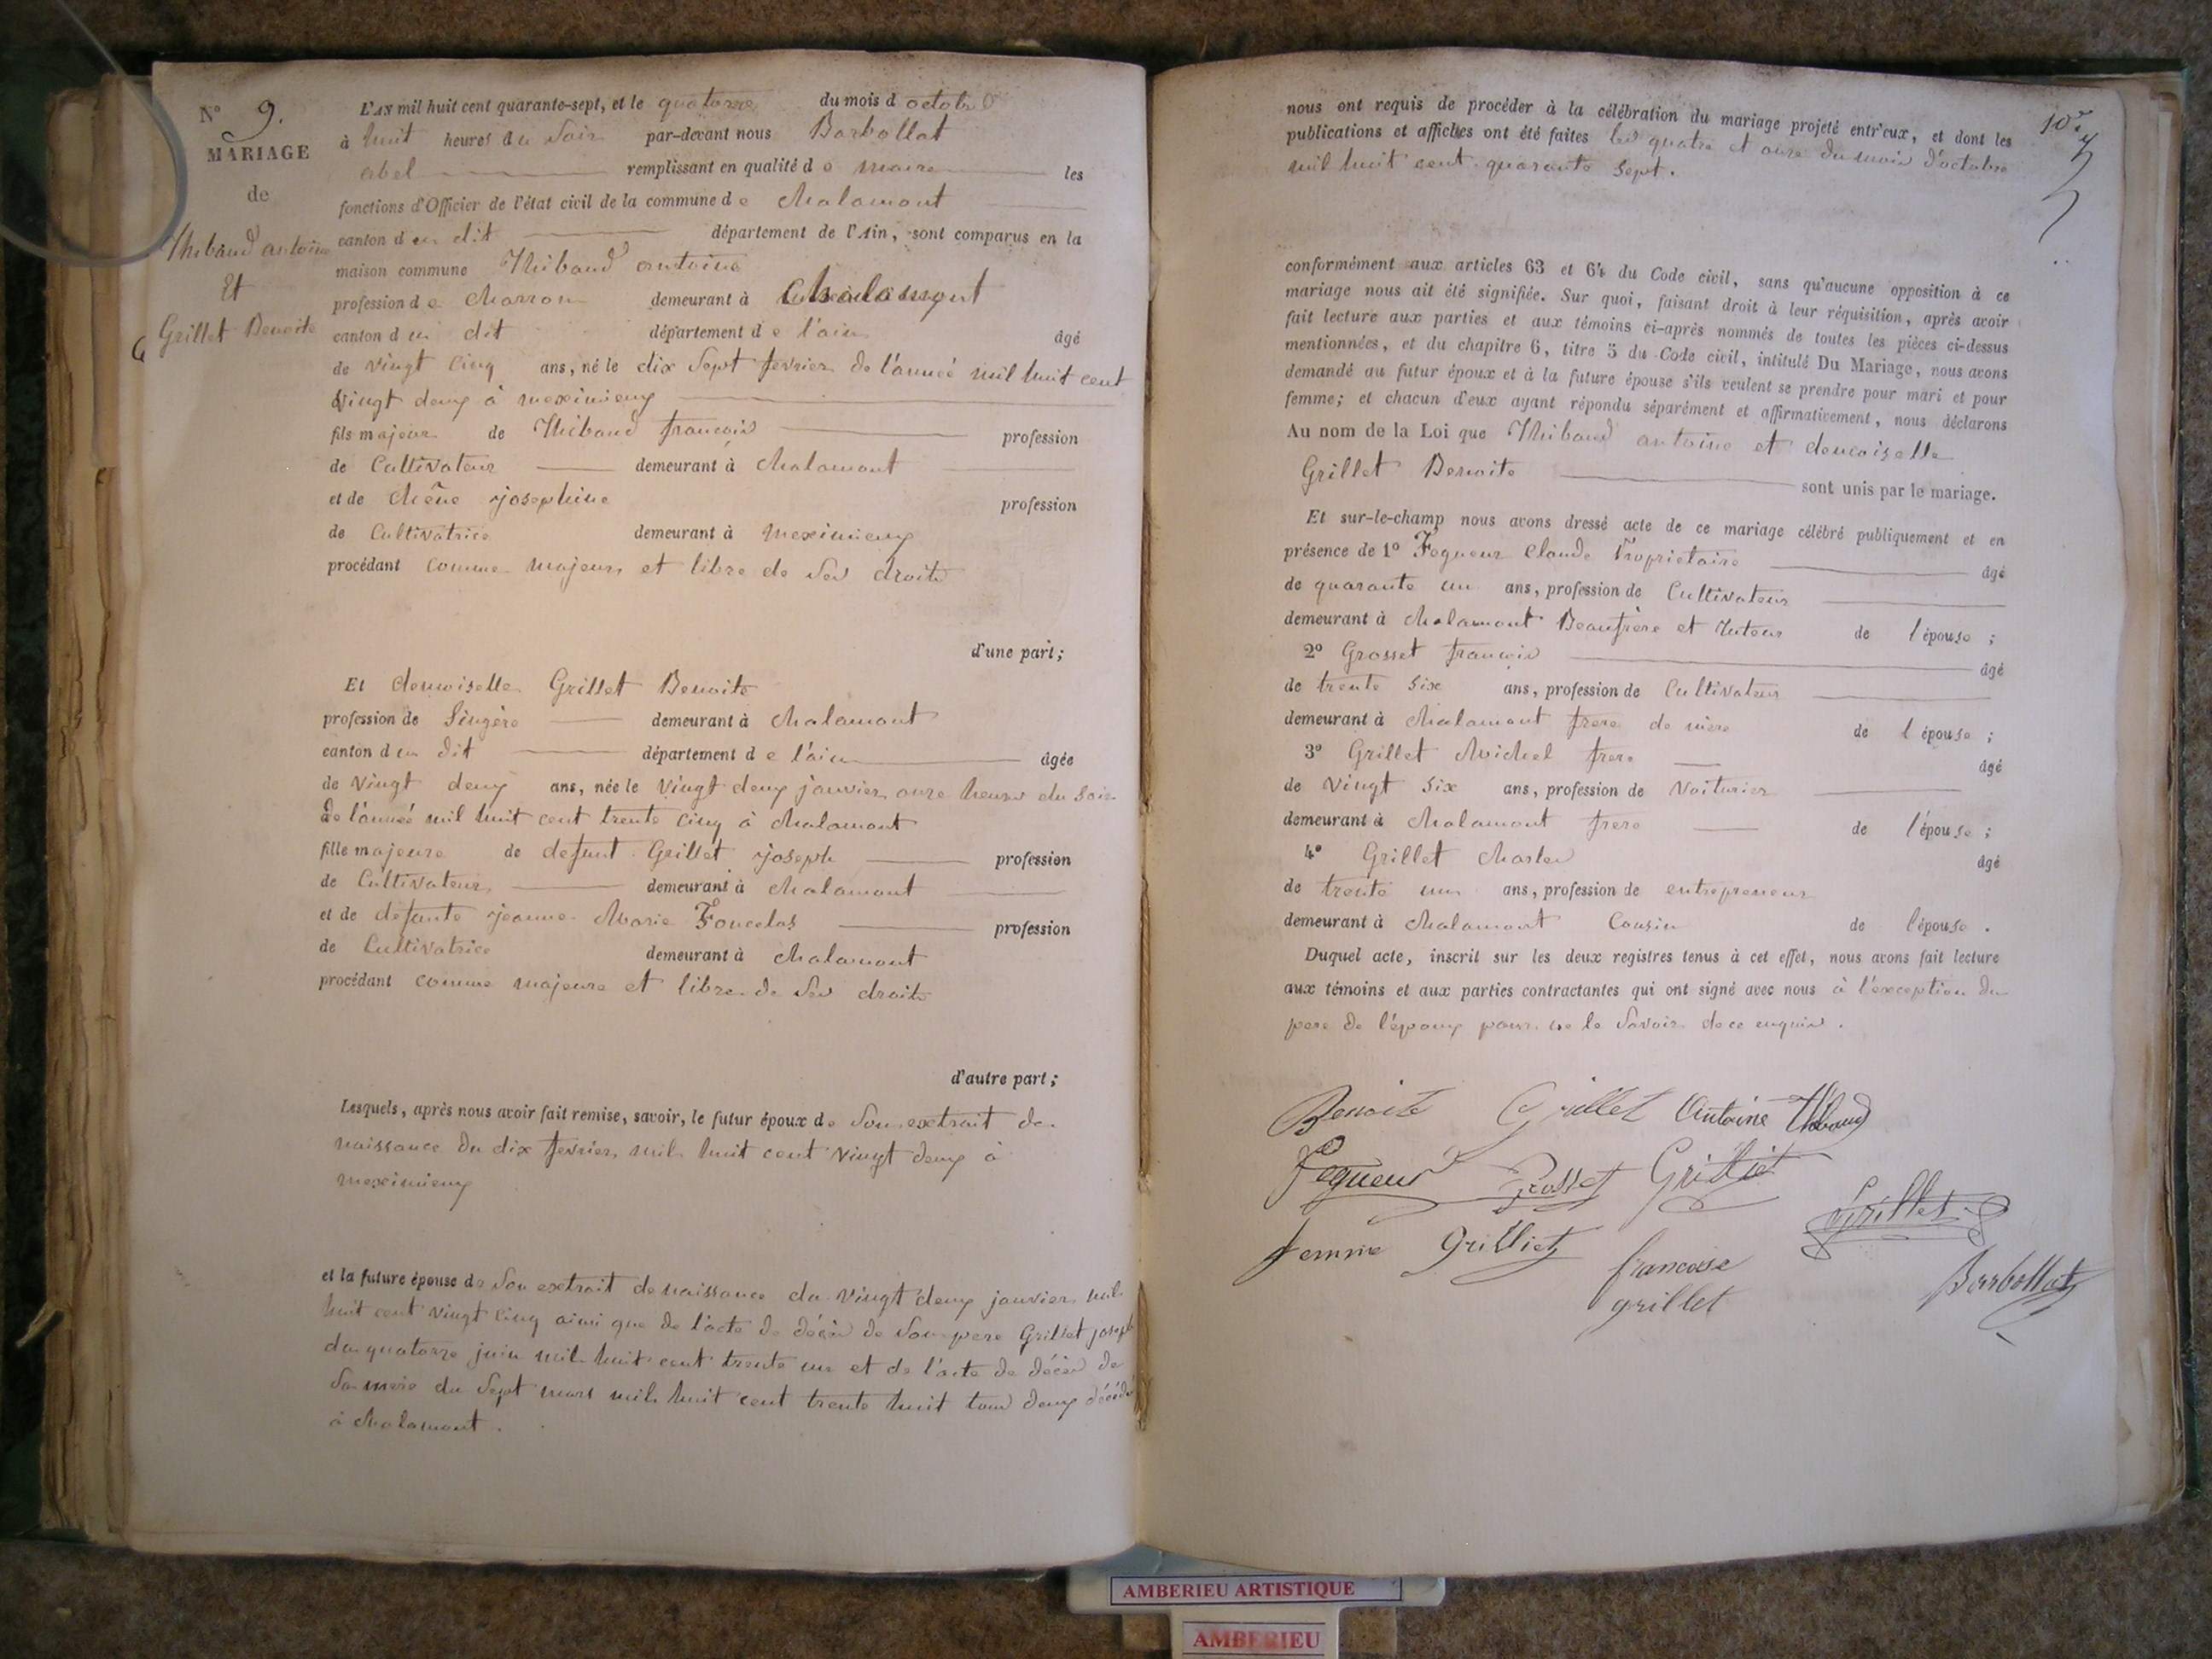 N° 9.
MARIAGE
de
Thibaud antoine
Et
Grillet Benoite
L'AN mil huit cent quarante-sept, et le quatorze du mois d octobre
à huit heures du soir par-devant nous Barbollat
abel remplissant en qualité de maire les
fonctions d'Officier de l'état civil de la commune de chalamont
canton du dit département de l'Ain, sont comparus en la
maison commune Thibaud antoine
profession de charron demeurant à chalamont
canton du dit département de l'ain âgé
de vingt cinq ans, né le dix sept fevrier de l'année mil huit cent
vingt deux à meximieux
fils majeur de Thibaud francois profession
de Cultivateur demeurant à chalamont
et de chêne josephine profession
de Cultivatrice demeurant à meximieux
procédant comme majeur et libre de ses droits
d'une part;
Et demoiselle Grillet Benoite
profession de lingère demeurant à chalamont
canton du dit département de l'ain âgée
de vingt deux ans, née le vingt deux janvier onze heures du soir
de l'année mil huit cent trente cinq à chalamont
fille majeure de defunt Grillet joseph profession
de Cultivateur demeurant à chalamont
et de defunte jeanne Marie Foncelas profession
de Cultivatrice demeurant à chalamont
procédant comme majeure et libre de ses droits
d'autre part;
Lesquels, après nous avoir fait remise, savoir, le futur époux de son extrait de
naissance du dix fevrier mil huit cent vingt deux à
meximieux
et la future épouse de son extrait de naissance du vingt deux janvier mil
huit cent vingt cinq ainsi que de l'acte de décès de son pere Grillet joseph
du quatorze juin mil huit cent trente un et de l'acte de décès de
sa mere du sept mars mil huit cent trente huit tous deux décédés
à chalamont.
nous ont requis de procéder à la célébration du mariage projeté entr'eux, et dont les
publications et affiches ont été faites les quatre et onze du mois d'octobre
mil huit cent quarante sept.
conformément aux articles 63 et 64 du Code civil, sans qu'aucune opposition à ce
mariage nous ait été signifiée. Sur quoi, faisant droit à leur réquisition, après avoir
fait lecture aux parties et aux témoins ci-après nommés de toutes les pièces ci-dessus
mentionnées, et du chapitre 6, titre 5 du Code civil, intitulé Du Mariage, nous avons
demandé au futur époux et à la future épouse s'ils veulent se prendre pour mari et pour
femme; et chacun d'eux ayant répondu séparément et affirmativement, nous déclarons
Au nom de la Loi que Thibaud antoine et demoiselle
Grillet Benoite sont unis par le mariage.
Et sur-le-champ nous avons dressé acte de ce mariage célébré publiquement et en
présence de 1° Fegueur Claude Propriétaire âgé
de quarante un ans, profession de Cultivateur
demeurant à chalamont Beaufrère et tuteur de l'épouse;
2° Grosset francois âgé
de trente six ans, profession de Cultivateur
demeurant à chalamont frere de mère de l'épouse;
3° Grillet Michel frere âgé
de vingt six ans, profession de Voiturier
demeurant à chalamont frere de l'épouse;
4° Grillet charles âgé
de trente un ans, profession de entrepreneur
demeurant à chalamont Cousin de l'épouse.
Duquel acte, inscrit sur les deux registres tenus à cet effet, nous avons fait lecture
aux témoins et aux parties contractantes qui ont signé avec nous à l'exception du
pere de l'époux pour ne le savoir de ce enquis.
Benoite Grillet Antoine Thibaud
Fegueur Grosset Grilliet
Grillet
femme Grilliet
francoise
grillet
Barbollat
AMBERIEU ARTISTIQUE
AMBERIEU